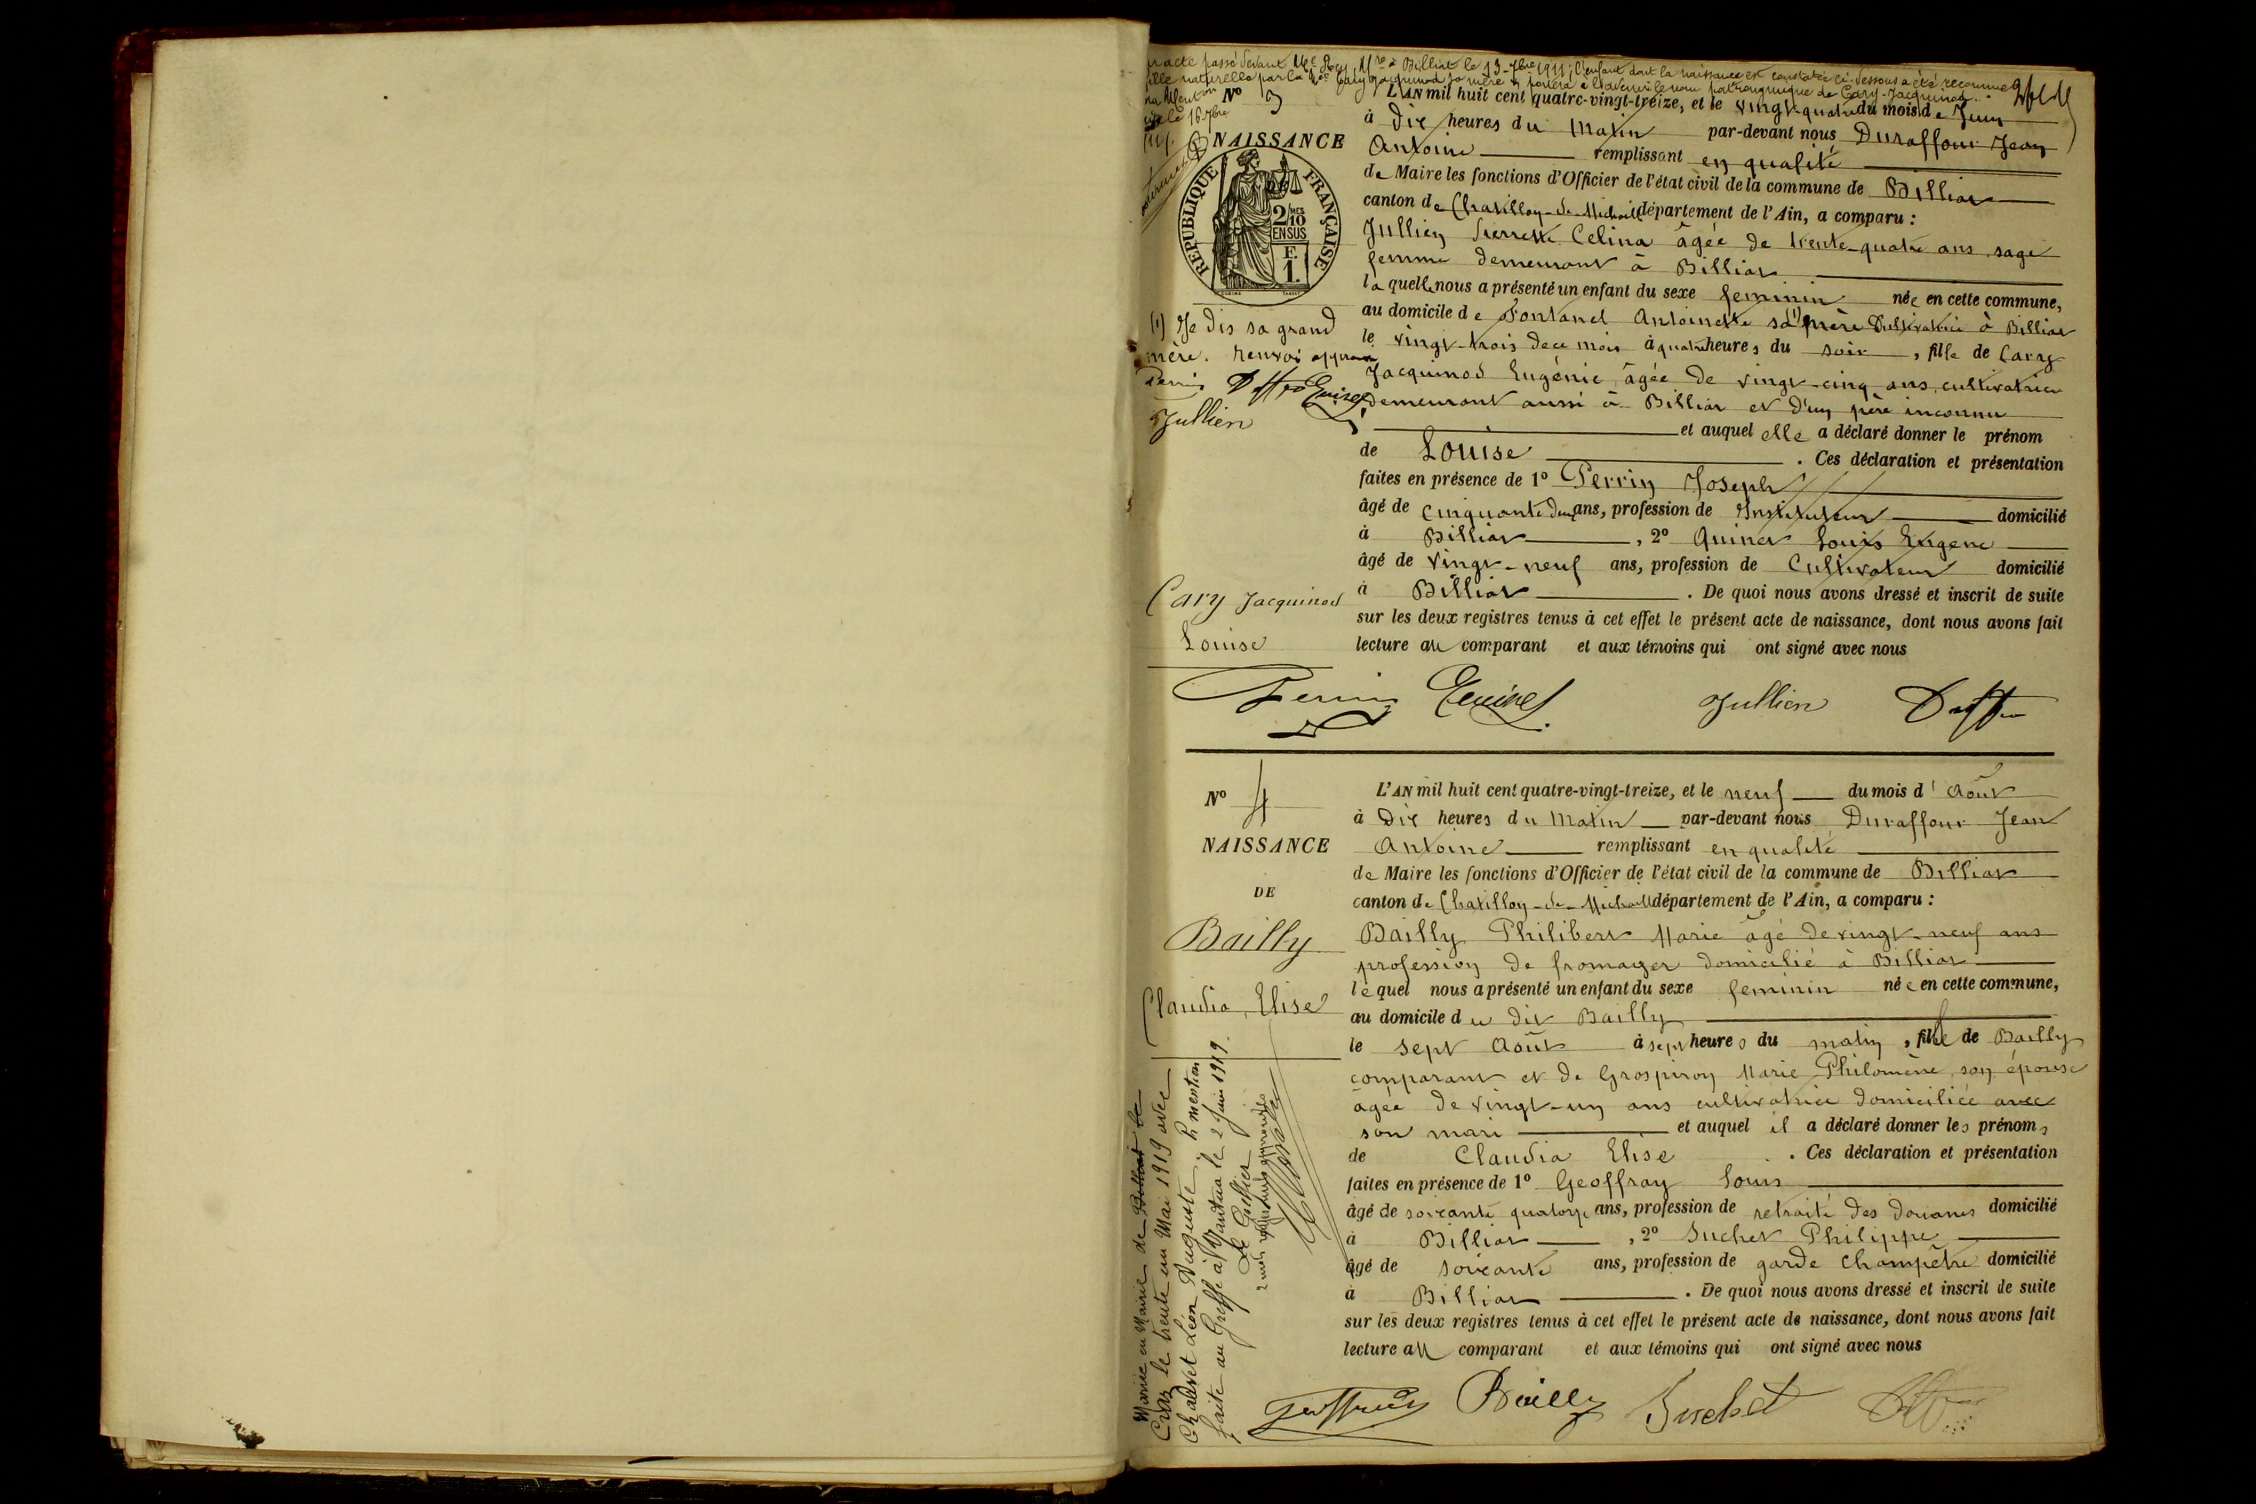 acte passé devant Me Rey, Nre à Billiat le 13 7bre 1911, l'enfant dont la naissance est constatée ci-dessous a été reconnue
fille naturelle par la Cary Jacquinod sa mère portera à l'avenir le nom patronymique de Cary-Jacquinod.
le 16 7bre
1911.
No 3
NAISSANCE
RÉPUBLIQUE FRANÇAISE
2/10 MES
EN SUS
F.
1.
(1) Je dis sa grand
mère. Renvoi approuvé
Perrin Quinet
Jullien
Cary Jacquinod
Louise
L'AN mil huit cent quatre-vingt-treize, et le vingt-quatre du mois de Juin
à Dix heures du Matin par-devant nous Duraffour Jean
Antoine remplissant en qualité
de Maire les fonctions d'Officier de l'état civil de la commune de Billiat
canton de Chatillon-de-Michaille département de l'Ain, a comparu :
Jullien Pierrette Celina âgée de trente-quatre ans sage
femme demeurant à Billiat
la quelle nous a présenté un enfant du sexe feminin née en cette commune,
au domicile de Fontanel Antoinette sa (1) mère Cultivatrice à Billiat
le vingt-trois de ce mois à quatre heures du soir, fille de Cary
Jacquinod Eugénie âgée de vingt-cinq ans, cultivatrice
demeurant aussi à Billiat et d'un père inconnu
et auquel elle a déclaré donner le prénom
de Louise. Ces déclaration et présentation
faites en présence de 1º Perrin Joseph
âgé de cinquante deux ans, profession de Instituteur domicilié
à Billiat, 2º Quinet Louis Eugene
âgé de vingt-neuf ans, profession de Cultivateur domicilié
à Billiat. De quoi nous avons dressé et inscrit de suite
sur les deux registres tenus à cet effet le présent acte de naissance, dont nous avons fait
lecture au comparant et aux témoins qui ont signé avec nous
Perrin Quinet Jullien
No 4
NAISSANCE
DE
Bailly
Claudia, Elise
L'AN mil huit cent quatre-vingt-treize, et le neuf du mois d'Août
à Dix heures du Matin par-devant nous Duraffour Jean
Antoine remplissant en qualité
de Maire les fonctions d'Officier de l'état civil de la commune de Billiat
canton de Chatillon-de-Michaille département de l'Ain, a comparu :
Bailly Philibert Marie âgé de vingt-neuf ans
profession de fromager domicilié à Billiat
lequel nous a présenté un enfant du sexe feminin née en cette commune,
au domicile du dit Bailly
le sept Août à sept heures du matin, fille de Bailly
comparant et de Grospiron Marie Philomène, son épouse
âgée de vingt-un ans cultivatrice domiciliée avec
son mari et auquel il a déclaré donner les prénoms
de Claudia Elise. Ces déclaration et présentation
faites en présence de 1º Geoffray Louis
âgé de soixante quatorze ans, profession de retraité des Douanes domicilié
à Billiat, 2º Suchet Philippe
âgé de soixante ans, profession de garde champêtre domicilié
à Billiat. De quoi nous avons dressé et inscrit de suite
sur les deux registres tenus à cet effet le présent acte de naissance, dont nous avons fait
lecture au comparant et aux témoins qui ont signé avec nous
Geoffray Bailly Suchet
Mariée en Mairie de Billiat le
Craz le trente un Mai 1919 avec
Chalevet Léon Auguste, P. mention
faite au Greffe à Nantua le 2 Juin 1919.
Le Greffier